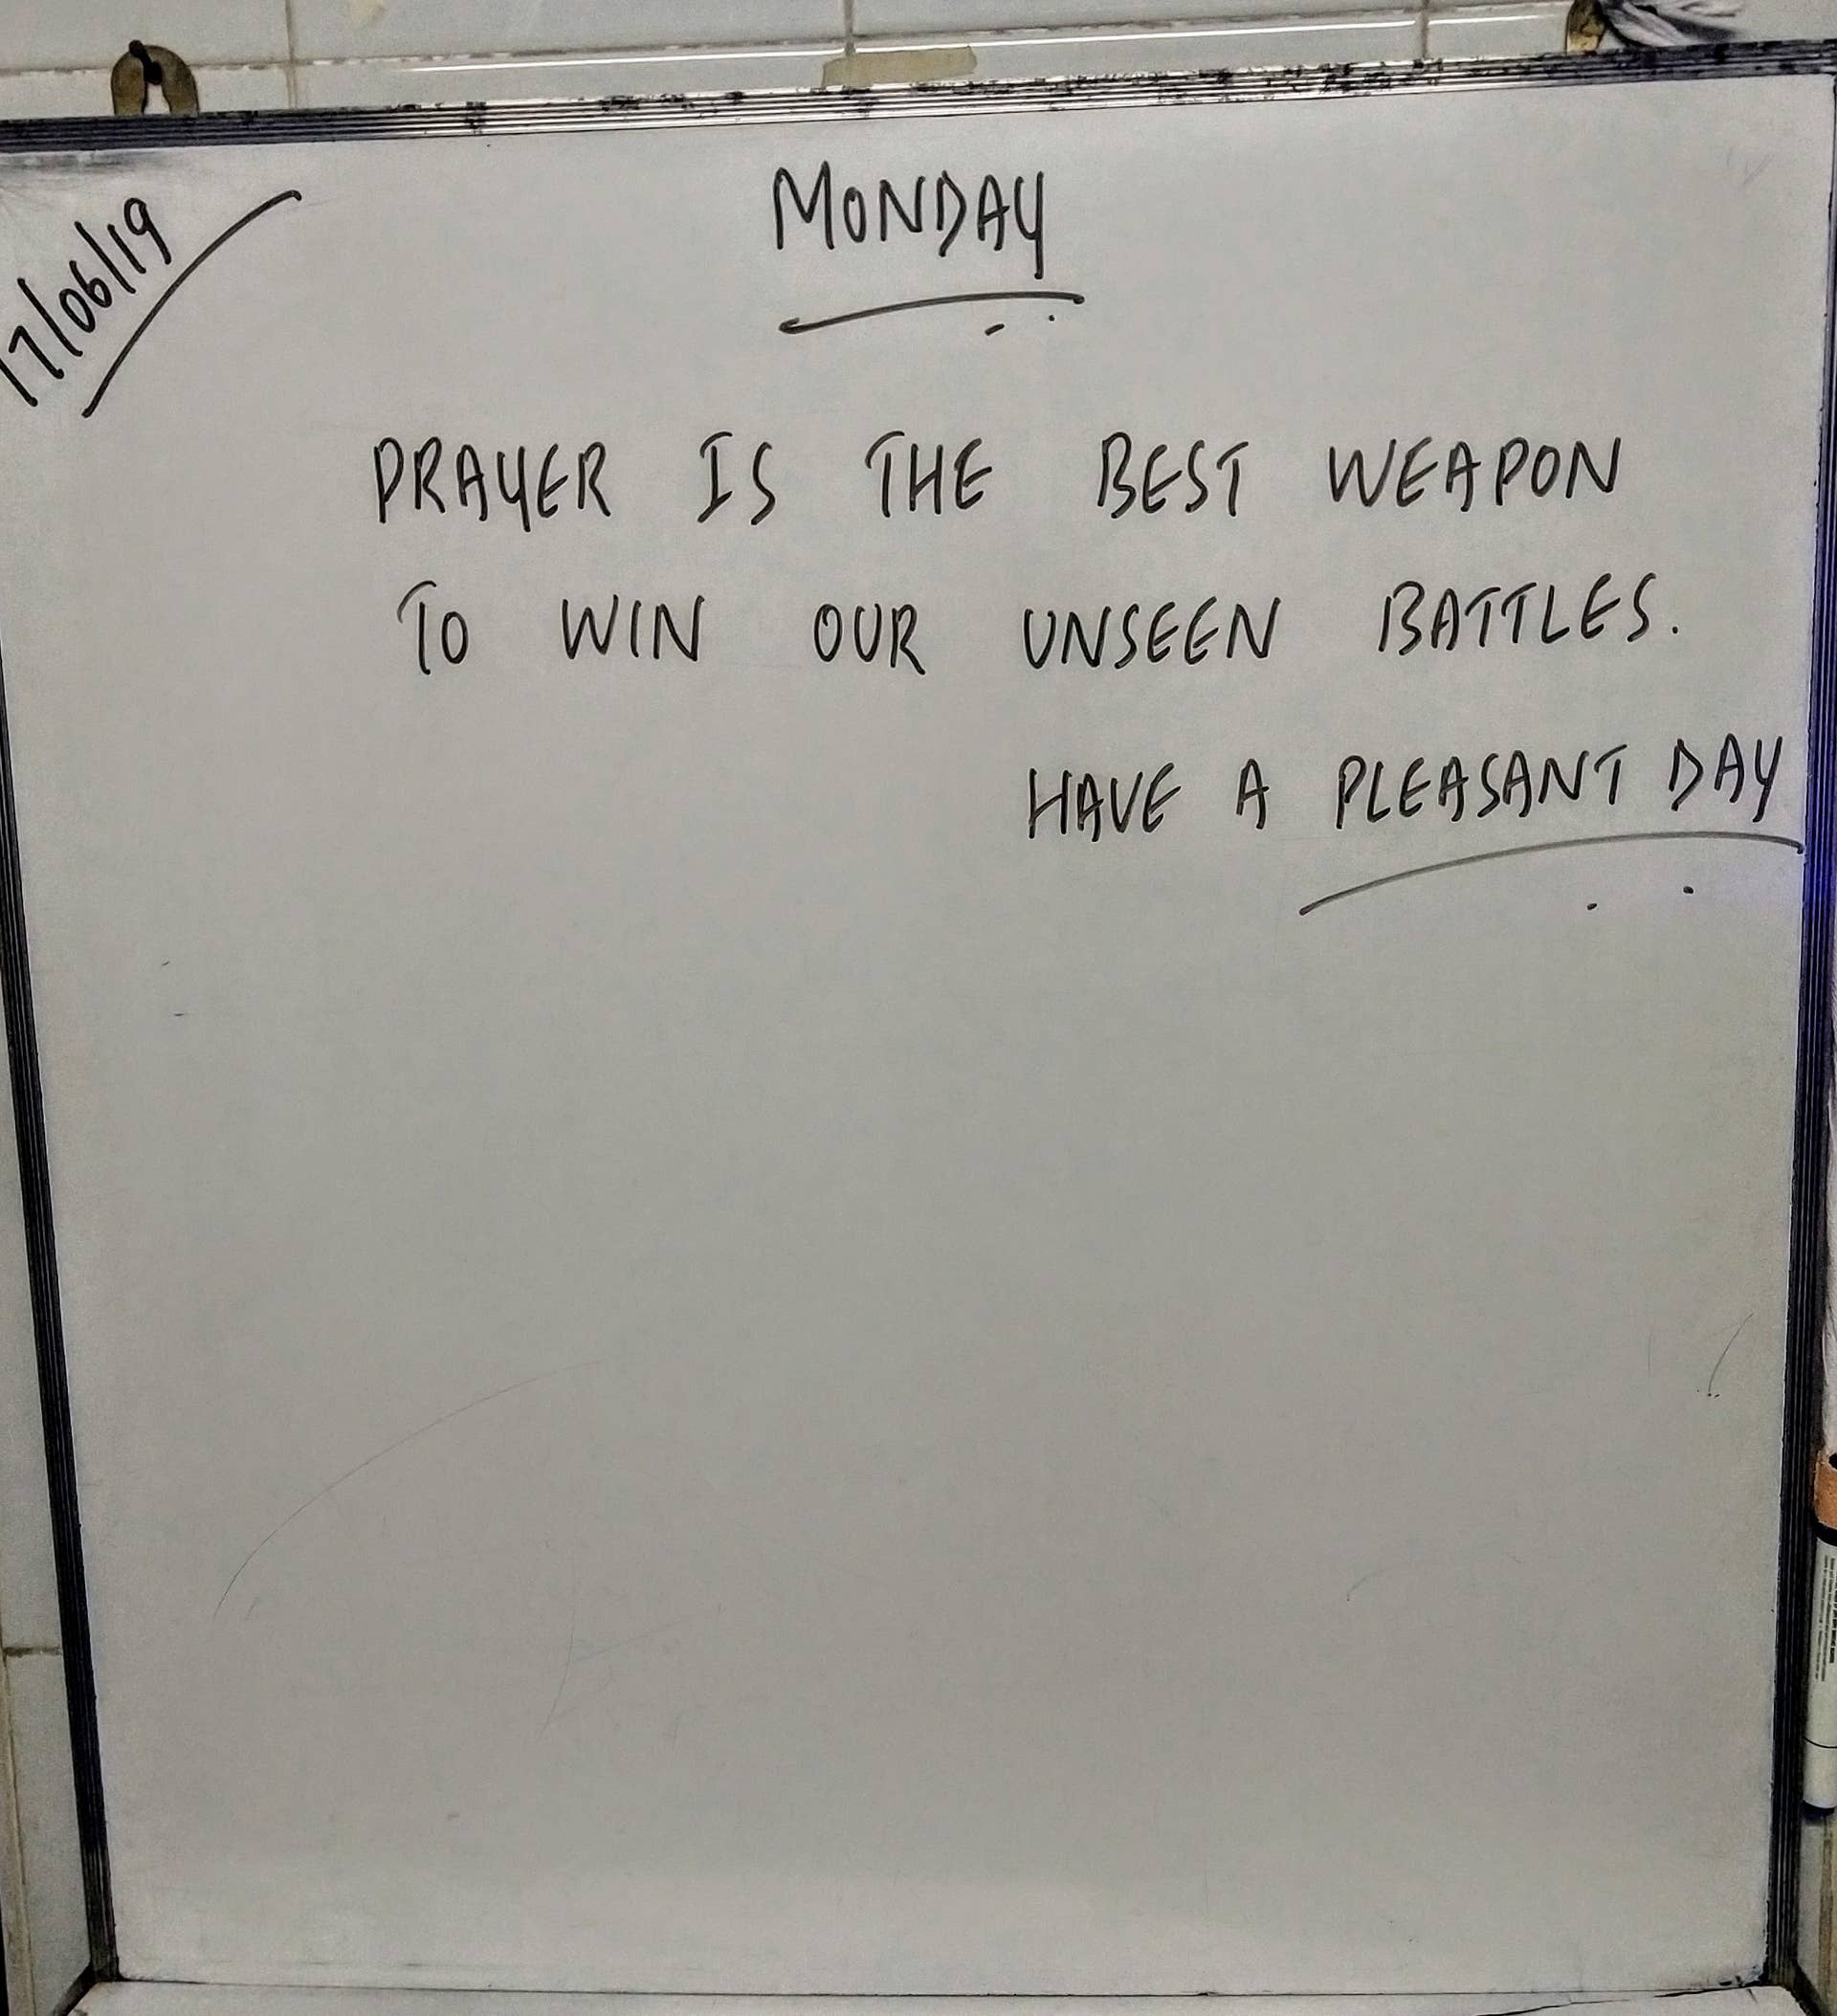 MONDAY
17/06/19
PRAYER IS THE BEST WEAPON
TO WIN OUR UNSEEN BATTLES.
HAVE A PLEASANT DAY